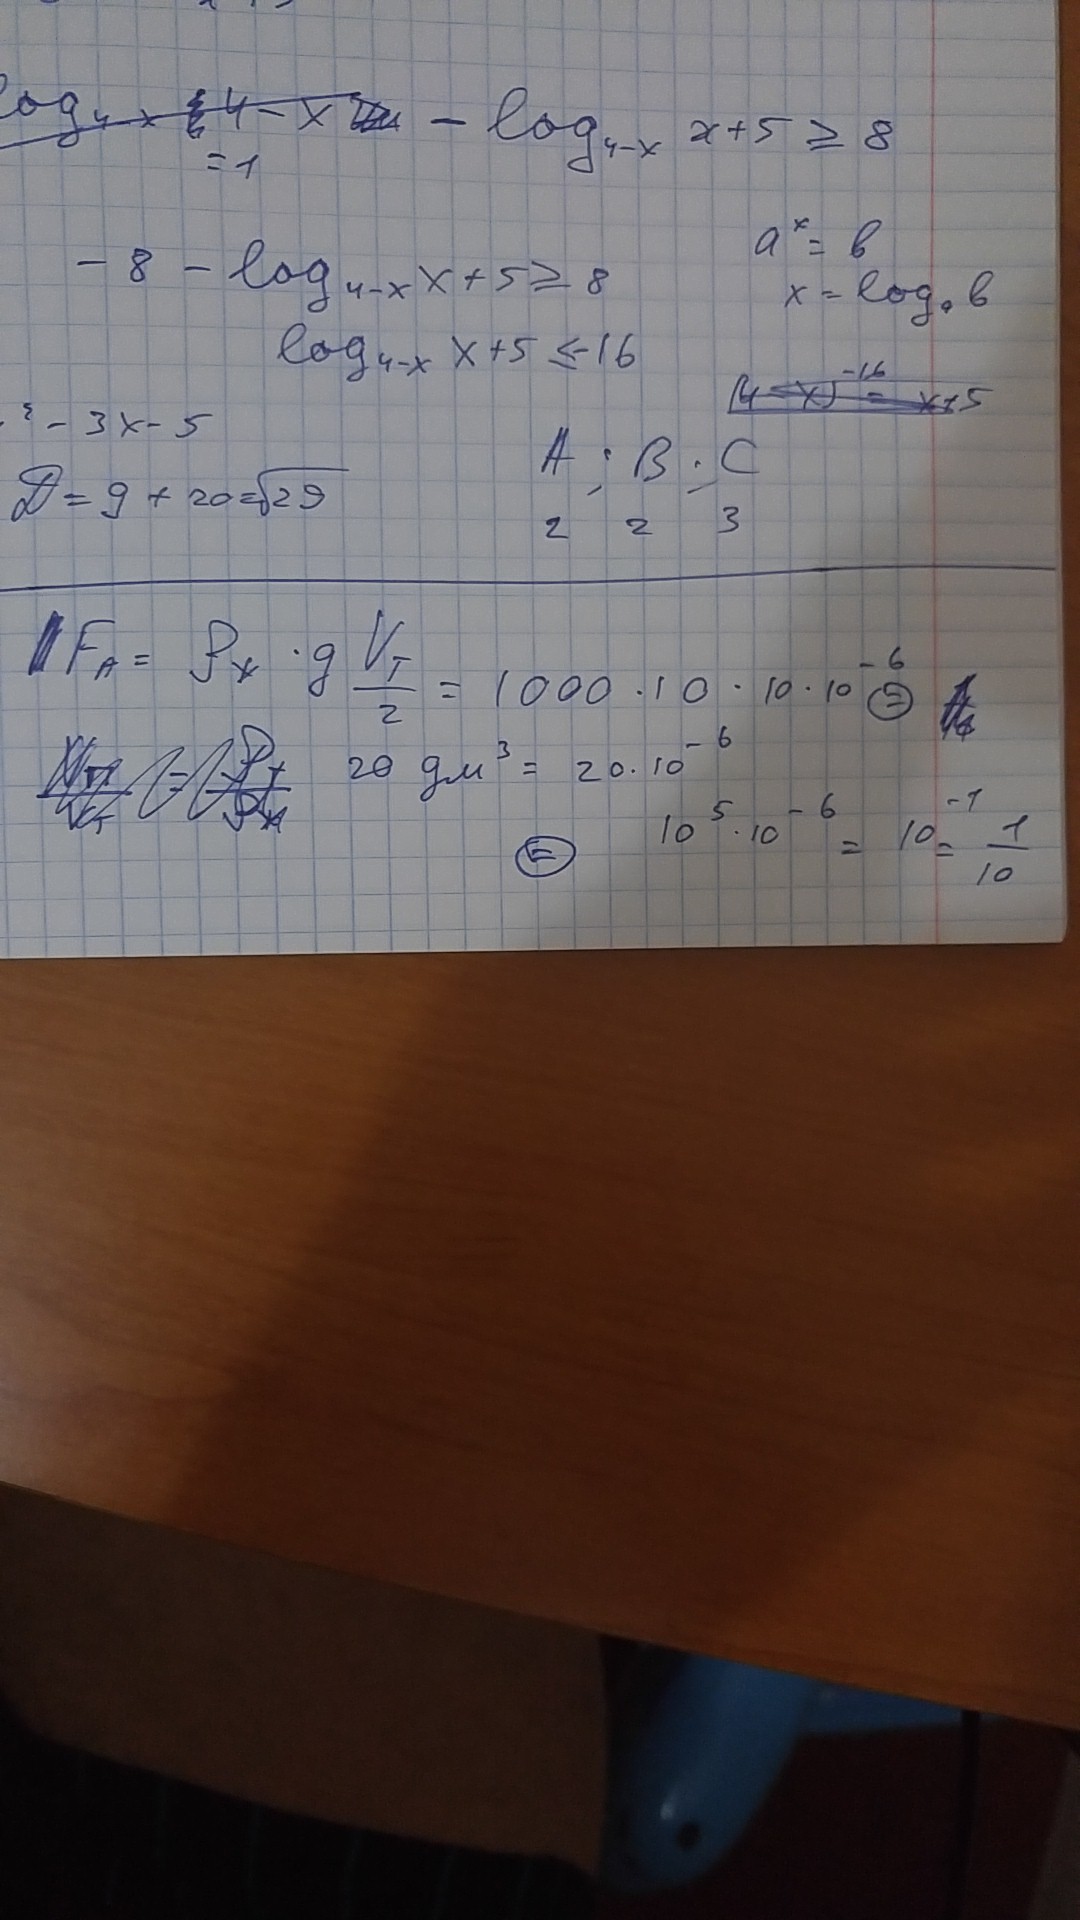 log₄₋ₓ 4-x - log₄₋ₓ x+5 ≥ 8
=1
-8 - log₄₋ₓ x+5 ≥ 8
aˣ = b
x = logₐ b
log₄₋ₓ x+5 ≤ -16
(4-x)⁻¹⁶ = x+5
² - 3x - 5
D = 9 + 20 = √29
A ; B ; C
2 2 3
F_A = ρ_ж · g V_T/2 = 1000 · 10 · 10 · 10⁻⁶ =
20 дм³ = 20 · 10⁻⁶
= 10⁵ · 10⁻⁶ = 10⁻¹ = 1/10